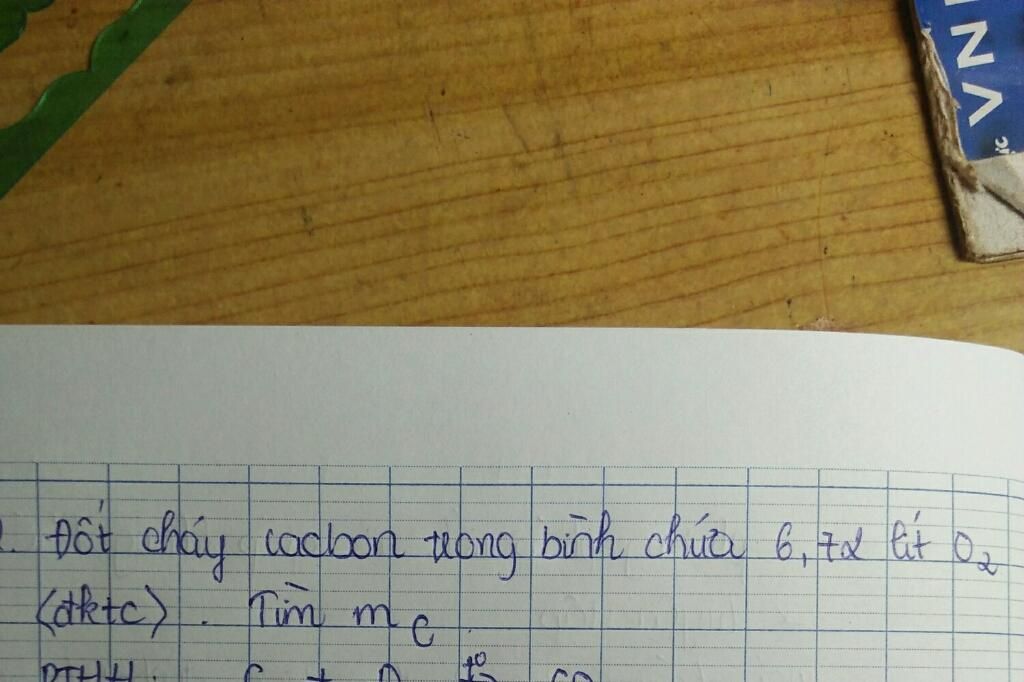 VN
Đốt cháy cacbon trong bình chứa 6,72 lít O₂
(đktc). Tìm m C
PTHH: C + O t° CO